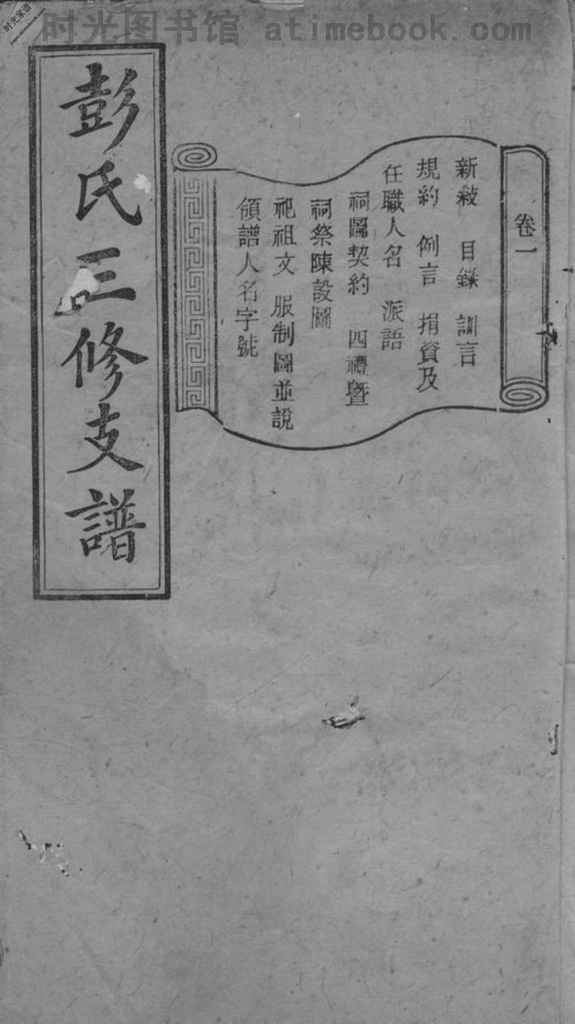 时光图书馆 atimebook.com
卷一
新敍 目錄 訓言
規約 例言 捐資及
任職人名 派語
祠圖契約 四禮暨
祠祭陳設圖
祀祖文 服制圖並說
領譜人名字號
彭氏三修支譜